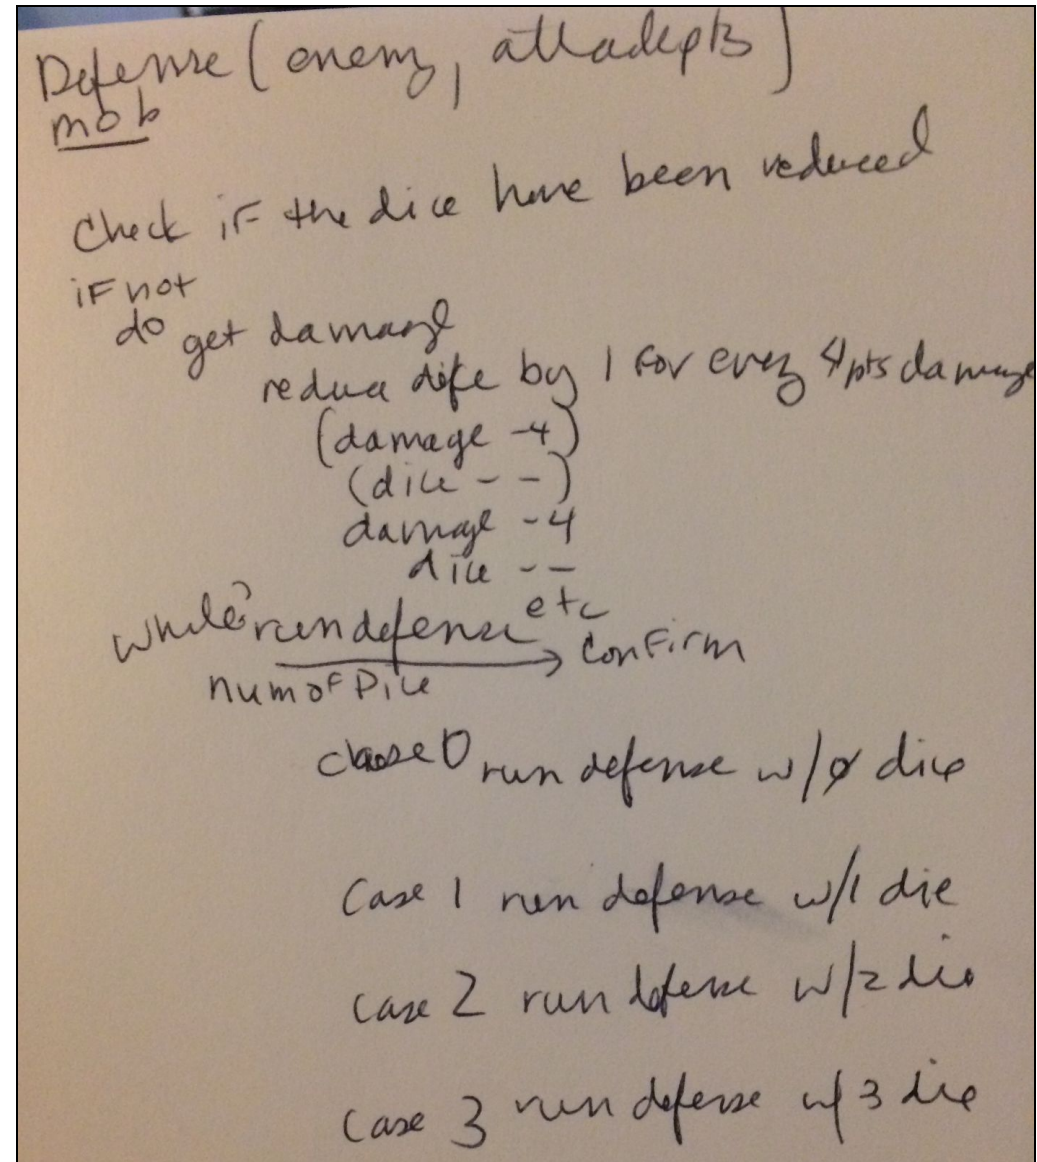 Defense (enemy, attackpts)
mob
Check if the dice have been reduced
if not
do get damage
reduce dice by 1 for every 4 pts damage
(damage -4)
(dice --)
damage -4
dice --
etc
while? run defense → confirm
num of Dice
case 0 run defense w/0 dice
Case 1 run defense w/1 die
case 2 run defense w/2 die
case 3 run defense w/3 die